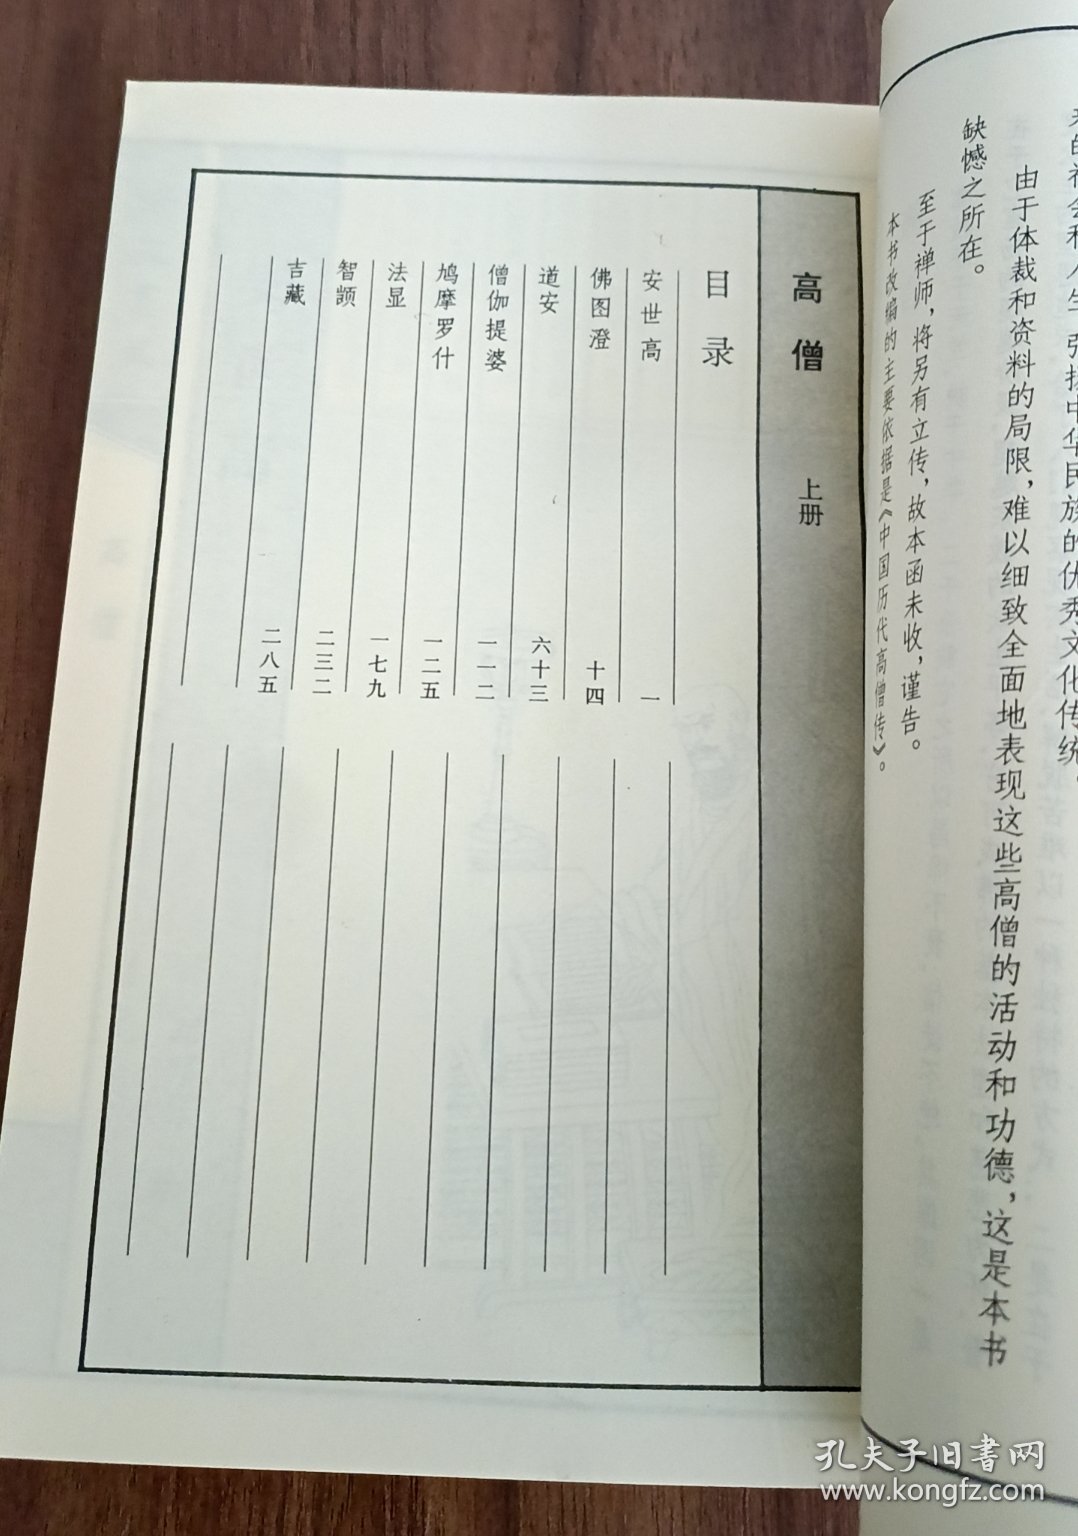 由于体裁和资料的局限，难以细致全面地表现这些高僧的活动和功德，这是本书
缺憾之所在。
至于禅师，将另有立传，故本函未收，谨告。
本书改编的主要依据是《中国历代高僧传》。
高僧 上册
目录
安世高 一
佛图澄 十四
道安 六十三
僧伽提婆 一一二
鸠摩罗什 一二五
法显 一七九
智𫖮 二三二
吉藏 二八五
孔夫子旧書网
www.kongfz.com